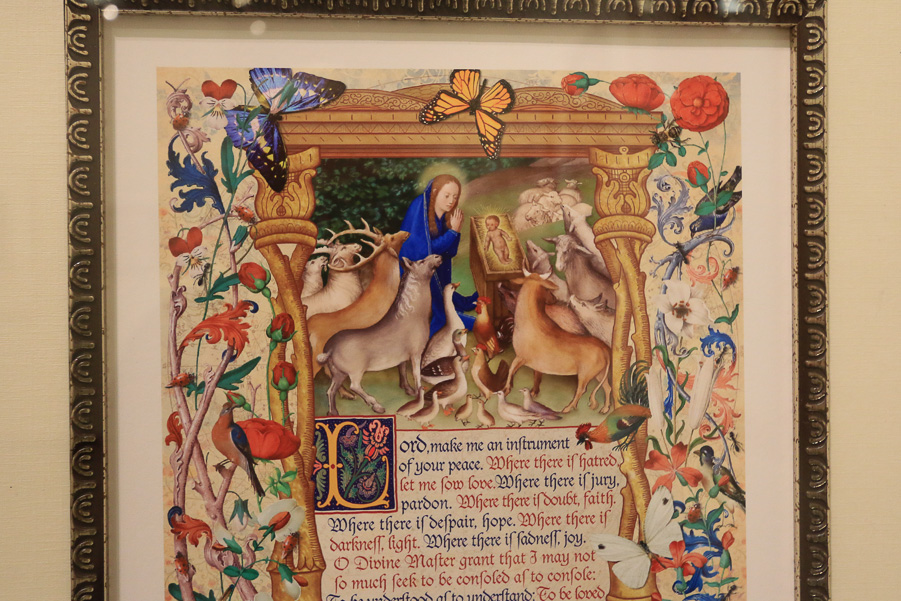 Lord, make me an instrument
of your peace. Where there iſ hatred,
let me ſow love. Where there iſ jury,
pardon. Where there iſ doubt, faith,
Where there iſ deſpair, hope. Where there iſ
darkneſſ, light. Where there iſ ſadneſſ, joy.
O Divine Maſter grant that I may not
ſo much ſeek to be conſoled aſ to conſole:
To be underſtood aſ to underſtand: To be loved